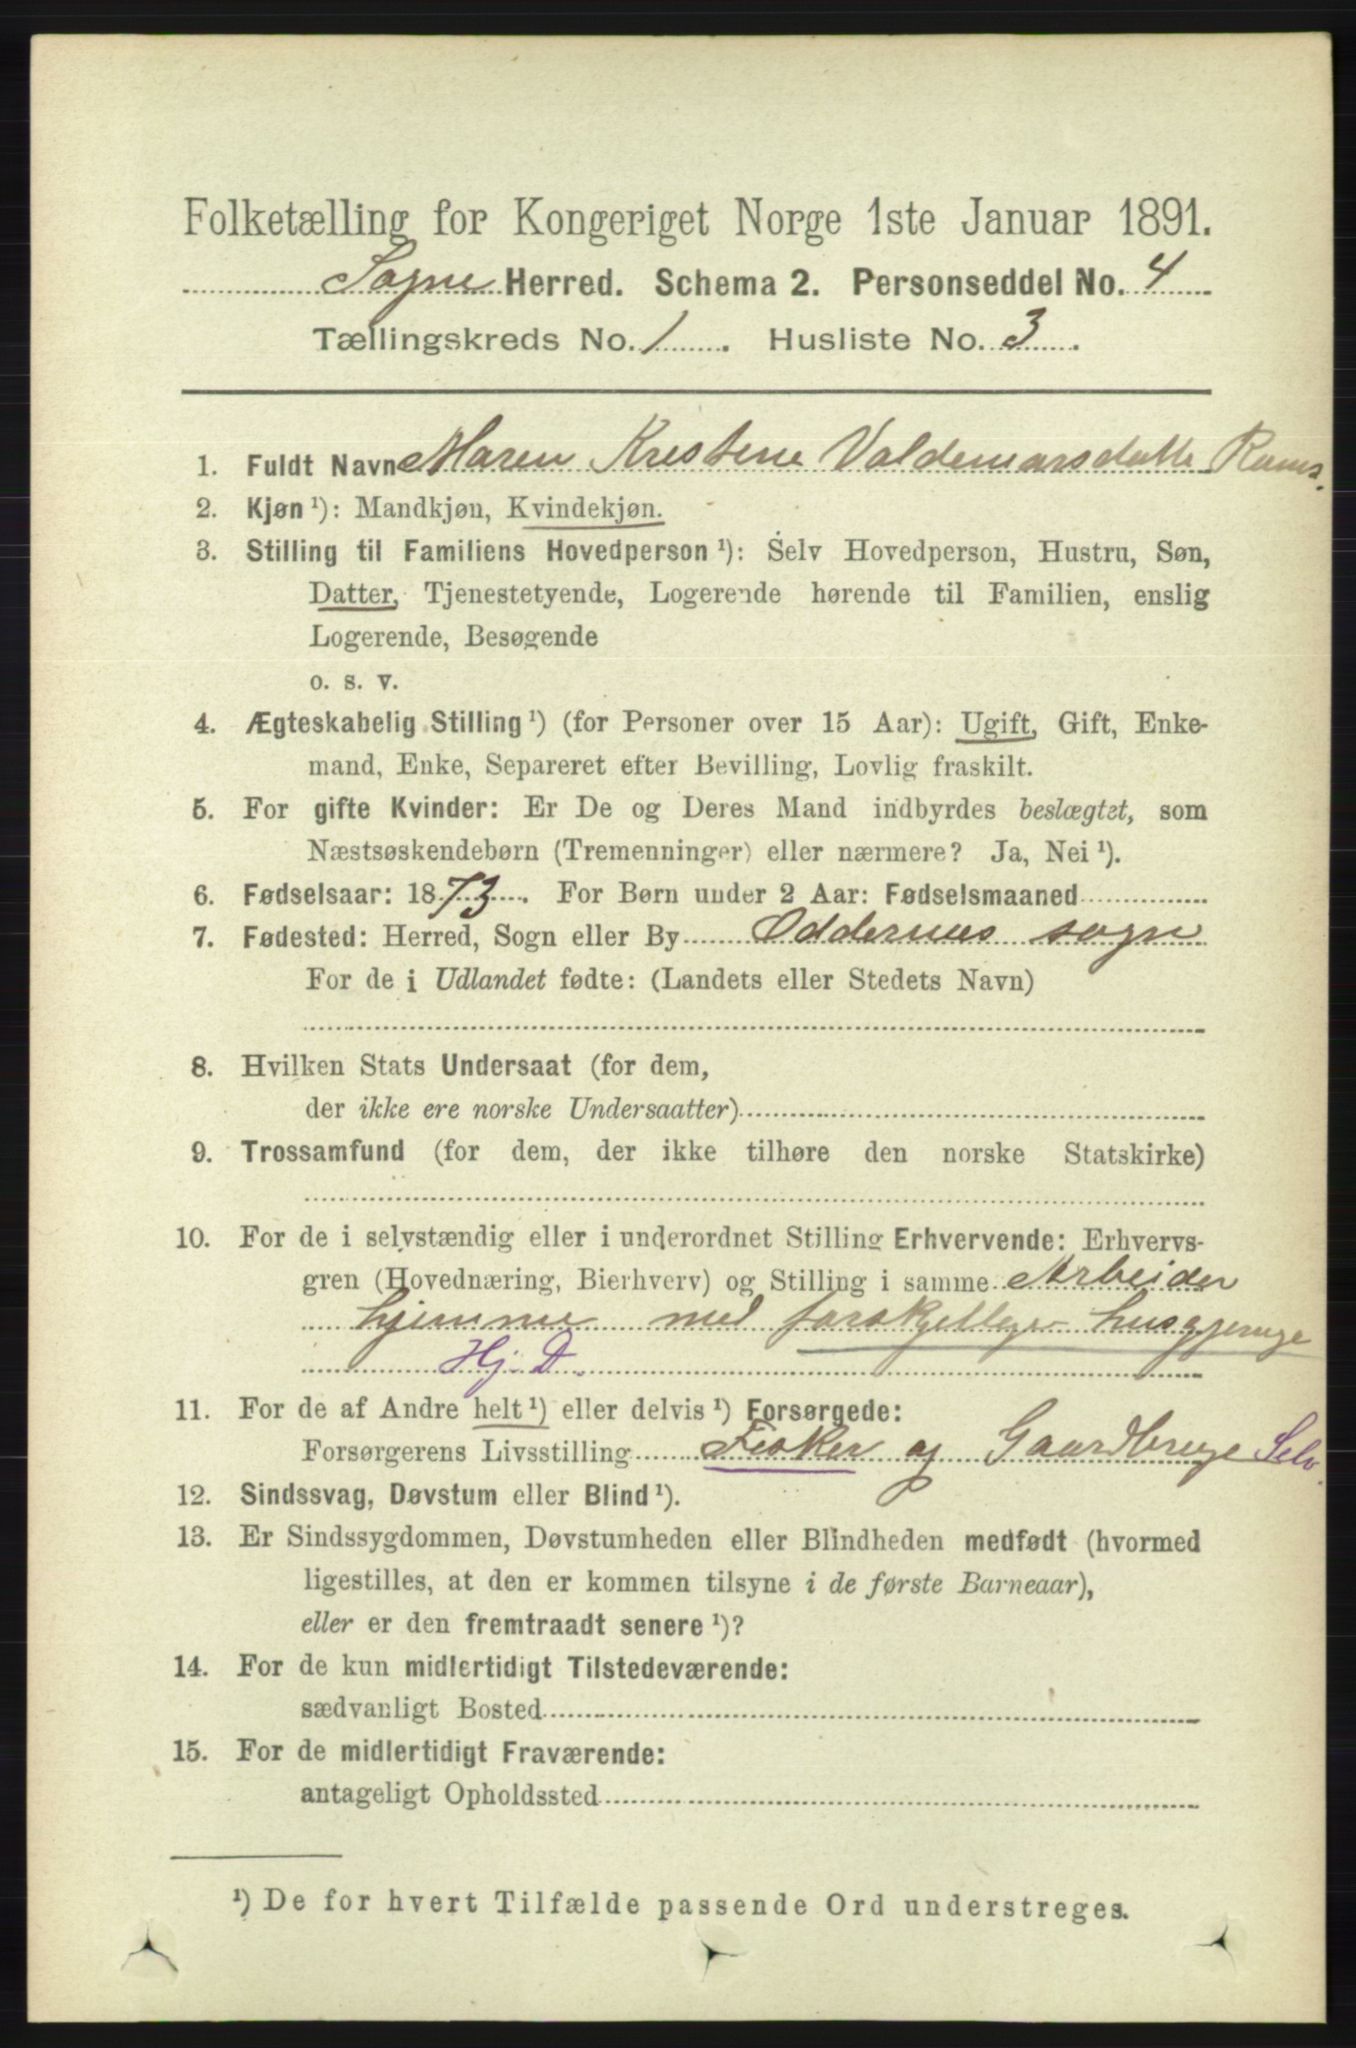 Folketælling for Kongeriget Norge 1ste Januar 1891.
Søgne Herred. Schema 2. Personseddel No. 4
Tællingskreds No. 1. Husliste No. 3.
1. Fuldt Navn Maren Kristene Valdemarsdatte Rams.
2. Kjøn ¹): Mandkjøn, Kvindekjøn.
3. Stilling til Familiens Hovedperson ¹): Selv Hovedperson, Hustru, Søn,
Datter, Tjenestetyende, Logerende hørende til Familien, enslig
Logerende, Besøgende
o. s. v.
4. Ægteskabelig Stilling ¹) (for Personer over 15 Aar): Ugift, Gift, Enke-
mand, Enke, Separeret efter Bevilling, Lovlig fraskilt.
5. For gifte Kvinder: Er De og Deres Mand indbyrdes beslægtet, som
Næstsøskendebørn (Tremenninger) eller nærmere? Ja, Nei ¹).
6. Fødselsaar: 1873. For Børn under 2 Aar: Fødselsmaaned
7. Fødested: Herred, Sogn eller By Oddernes sogn
For de i Udlandet fødte: (Landets eller Stedets Navn)
8. Hvilken Stats Undersaat (for dem,
der ikke ere norske Undersaatter)
9. Trossamfund (for dem, der ikke tilhøre den norske Statskirke)
10. For de i selvstændig eller i underordnet Stilling Erhvervende: Erhvervs-
gren (Hovednæring, Bierhverv) og Stilling i samme Arbeider
hjemme med forskjelliger husgjerninge
Hj. D.
11. For de af Andre helt ¹) eller delvis ¹) Forsørgede:
Forsørgerens Livsstilling Fisker og Gaardbruge Selv.
12. Sindssvag, Døvstum eller Blind ¹).
13. Er Sindssygdommen, Døvstumheden eller Blindheden medfødt (hvormed
ligestilles, at den er kommen tilsyne i de første Barneaar),
eller er den fremtraadt senere ¹)?
14. For de kun midlertidigt Tilstedeværende:
sædvanligt Bosted
15. For de midlertidigt Fraværende:
antageligt Opholdssted
¹) De for hvert Tilfælde passende Ord understreges.